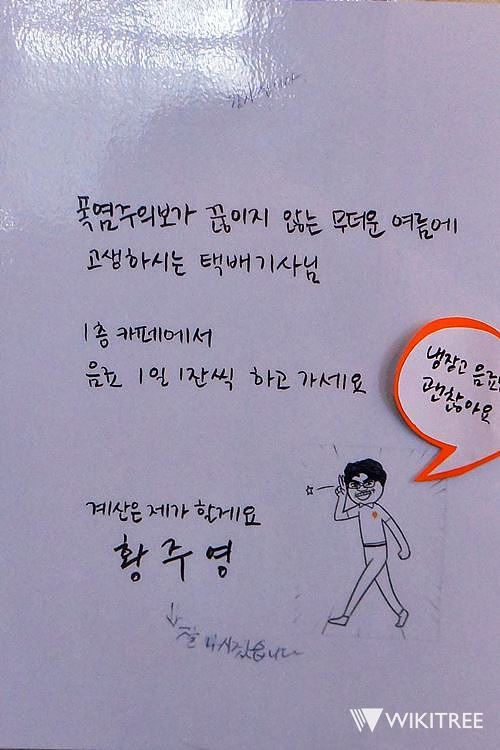 감사합니다
폭염주의보가 끊이지 않는 무더운 여름에
고생하시는 택배기사님
1층 카페에서
음료 1일 1잔씩 하고 가세요
냉장고 음료
괜찮아요
계산은 제가 할게요
황주영
잘 마시겠습니다
WIKITREE